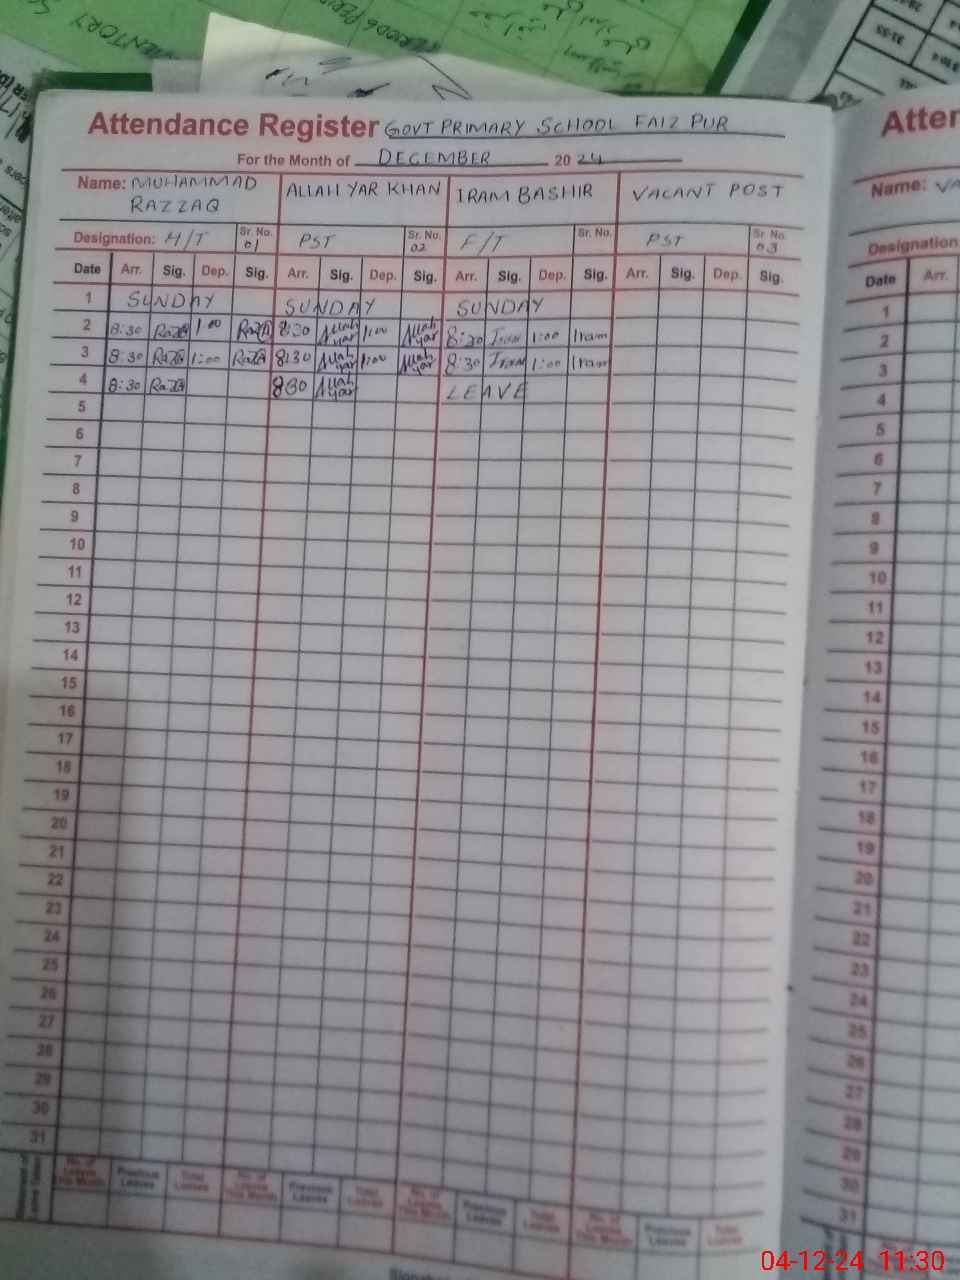 Attendance Register GOVT PRIMARY SCHOOL FAIZ PUR
For the Month of DECEMBER 2024
Name: MUHAMMAD RAZZAQ ALLAH YAR KHAN IRAM BASHIR VACANT POST
Designation: H/T Sr. No. 01 PST Sr. No. 02 F/T Sr. No. PST Sr. No. 03
Date Arr. Sig. Dep. Sig. Arr. Sig. Dep. Sig. Arr. Sig. Dep. Sig. Arr. Sig. Dep. Sig.
1 SUNDAY SUNDAY SUNDAY
2 8:30 1:00 8:30 Allah yar 1:00 Allah yar 8:30 Iram 1:00 Iram
3 8:30 1:00 8:30 Allah yar 1:00 Allah yar 8:30 Iram 1:00 Iram
4 8:30 8:30 Allah yar LEAVE
5
6
7
8
9
10
11
12
13
14
15
16
17
18
19
20
21
22
23
24
25
26
27
28
29
30
31
No. of Leaves This Month Previous Leaves Total Leaves No. of Leaves This Month Previous Leaves Total Leaves No. of Leaves This Month Previous Leaves Total Leaves No. of Leaves This Month Previous Leaves Total Leaves
Atten
Name: VA
Designation:
Date Arr.
1
2
3
4
5
6
7
8
9
10
11
12
13
14
15
16
17
18
19
20
21
22
23
24
25
26
27
28
29
30
31
04-12-24 11:30